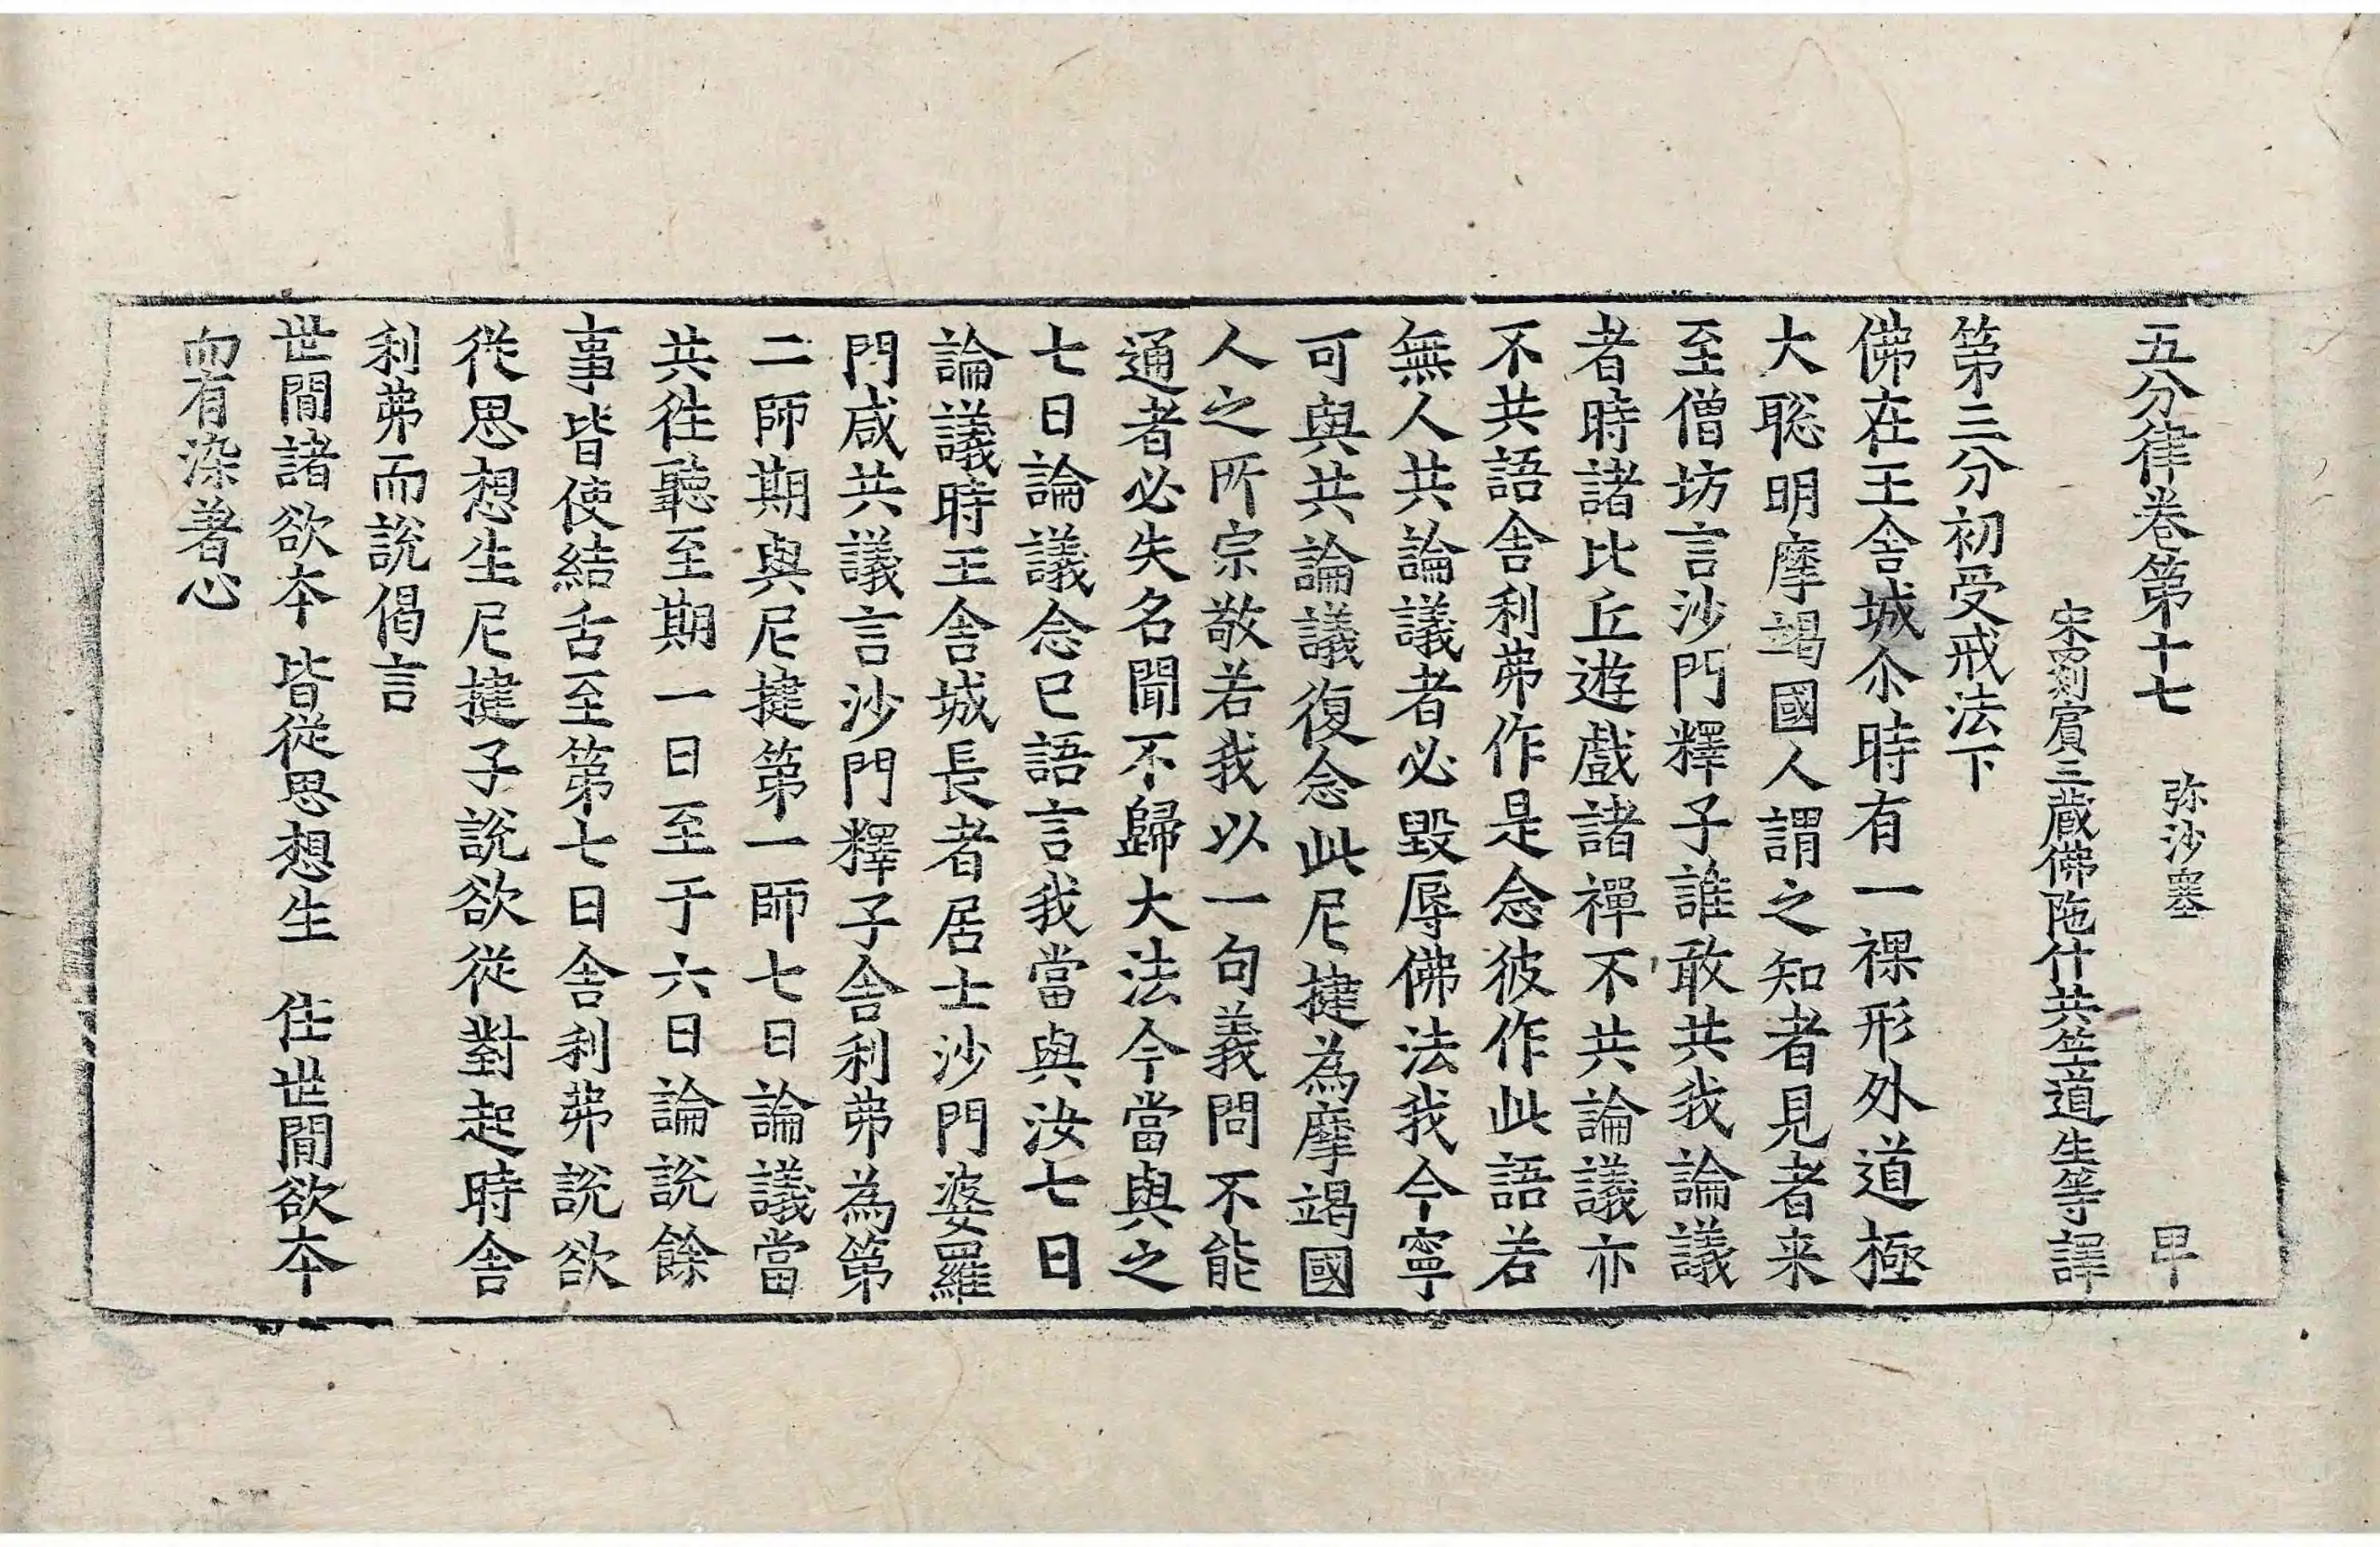 五分律卷第十七 弥沙塞
宋罽賓三藏佛陁什共竺道生等譯
第三分初受戒法下
佛在王舍城尒時有一裸形外道極
大聡明摩竭國人謂之知者見者来
至僧坊言沙門釋子誰敢共我論議
者時諸比丘遊戲諸禪不共論議亦
不共語舍利弗作是念彼作此語若
無人共論議者必毀辱佛法我今寧
可與共論議復念此尼揵為摩竭國
人之所宗敬若我以一句義問不能
通者必失名聞不歸大法今當與之
七日論議念已語言我當與汝七日
論議時王舍城長者居士沙門婆羅
門咸共議言沙門釋子舍利弗為第
二師期與尼揵第一師七日論議當
共往聽至期一日至于六日論說餘
事皆使結舌至第七日舍利弗說欲
從思想生尼揵子說欲從對起時舍
利弗而說偈言
世間諸欲本 皆從思想生 住世間欲本
而有染著心